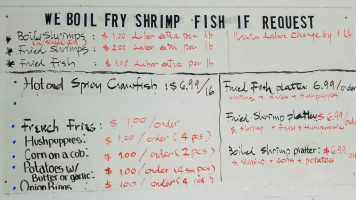 WE BOIL FRY SHRIMP FISH IF REQUEST
Boiled Shrimps : $ 1.00 Labor extra per lb
Fried Shrimps : $ 2.00 Labor extra per lb
Fried Fish : $ 1.00 Labor extra per lb
Labor Charge by 1 lb
Hot and Spicy Crawfish : $6.99/lb
French Fries : $ 1.00/order
Hushpuppies : $ 1.00/order (4 pcs)
Corn on a cob : $ 1.00/order (2 pcs)
Potatoes w/ : $ 1.00/order (2 pcs)
Butter or garlic
Onion Rings : $ 1.00/order
Fried Fish platter: 6.99/order
shrimp + fries + Hushpuppies
Fried Shrimp platter $ 6.99/order
shrimp + fries + Hushpuppies
Boiled Shrimp platter: $6.99
shrimp + corn + potatoes